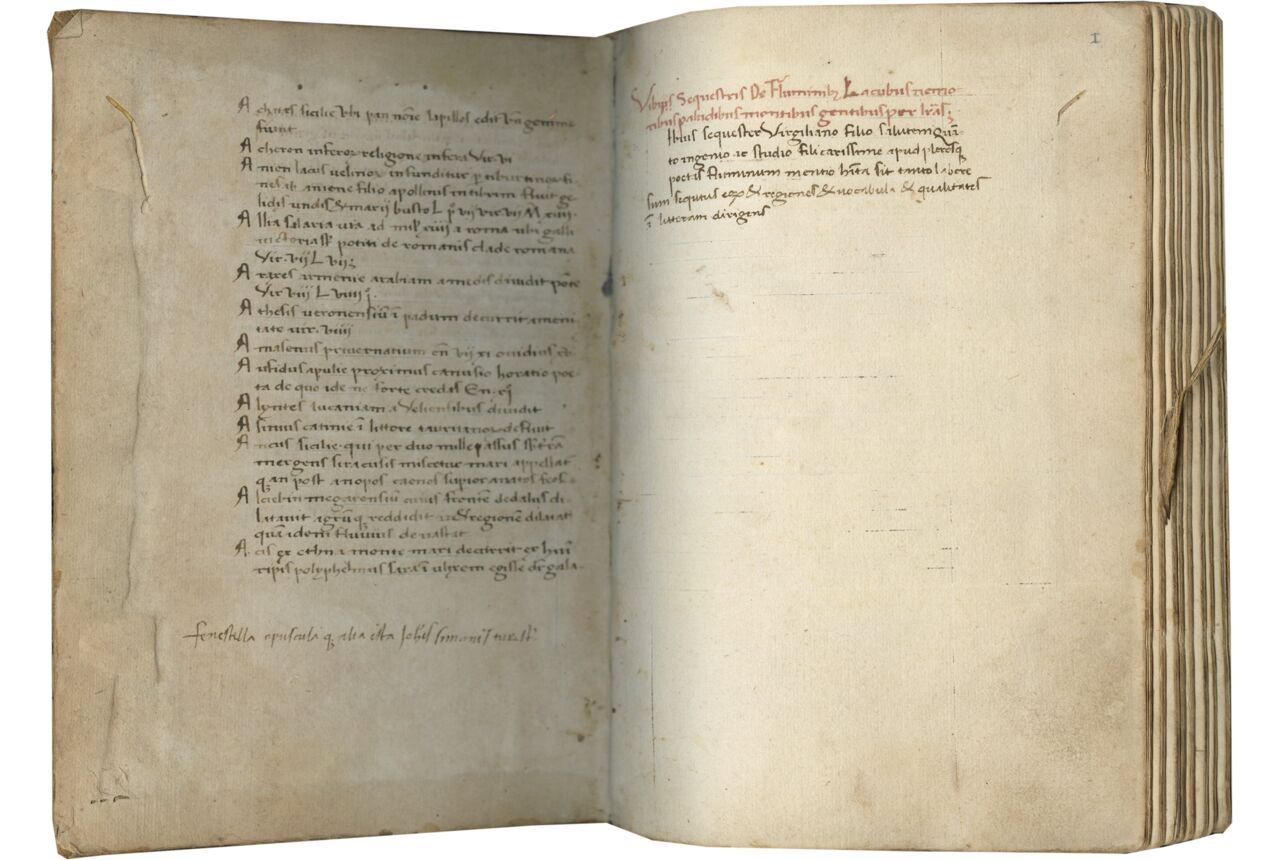 A chates sicilie ubi pan noïe lapillos edit un gemme
fiunt
A cheron inferoꝝ religione infera Vir. vi
A nien lacus velinoꝝ infunditur p tiburtinos fi-
nes ab aniene filio apollinis in tibrim fluit ge
lidis undis & marii busto L
A llia salaria uia ad milꝭ xiiii a roma ubi galli
uictorias potiti de romanis clade romana
Vir. vij L vij;
A raxes armenie arabiam a medis diuidit pöte
Vir viii L viiii
A thesis ueronensiū ī padum decurrit ameni
tate uir. viiii
A masenus priuernatium en vij xi ouidius
A ufidus apulie proximus canusio horatio poe-
ta de quo ide ne forte credas En. xj
A lyntes lucaniam a Veliensibus diuidit
A sinius catinie ī littore tauritanoꝝ defluit
A ncus sicilie qui per duo mille passus sb̄ trā
mergens siracusis miscetur mari appellat
anapos
A in megarensiū cuius fronte dedalus di-
latauit agrūq reddidit & regione diluiat
quā idem fluuius deuastat
A cis ex ethna monte mari decurrit ex huiꝰ
ripis polyphemus saxa ī ulyxem egisse dr̄ gala-
fenestella opuscula q alia ista Johīs simonis
I
Vibius Sequestris De Fluminibꝫ Lacubus nemo
ribus paludibus montibus gentibus per lrās;
Ibius sequester Virgiliano filio salutem Quā-
to ingenio ac studio fili carissime apud plerosq
poetas fluminum mentio hīta sit tanto labore
sum sequtus eoꝝ & regiones & uocabula & qualitates
ī litteram dirigens